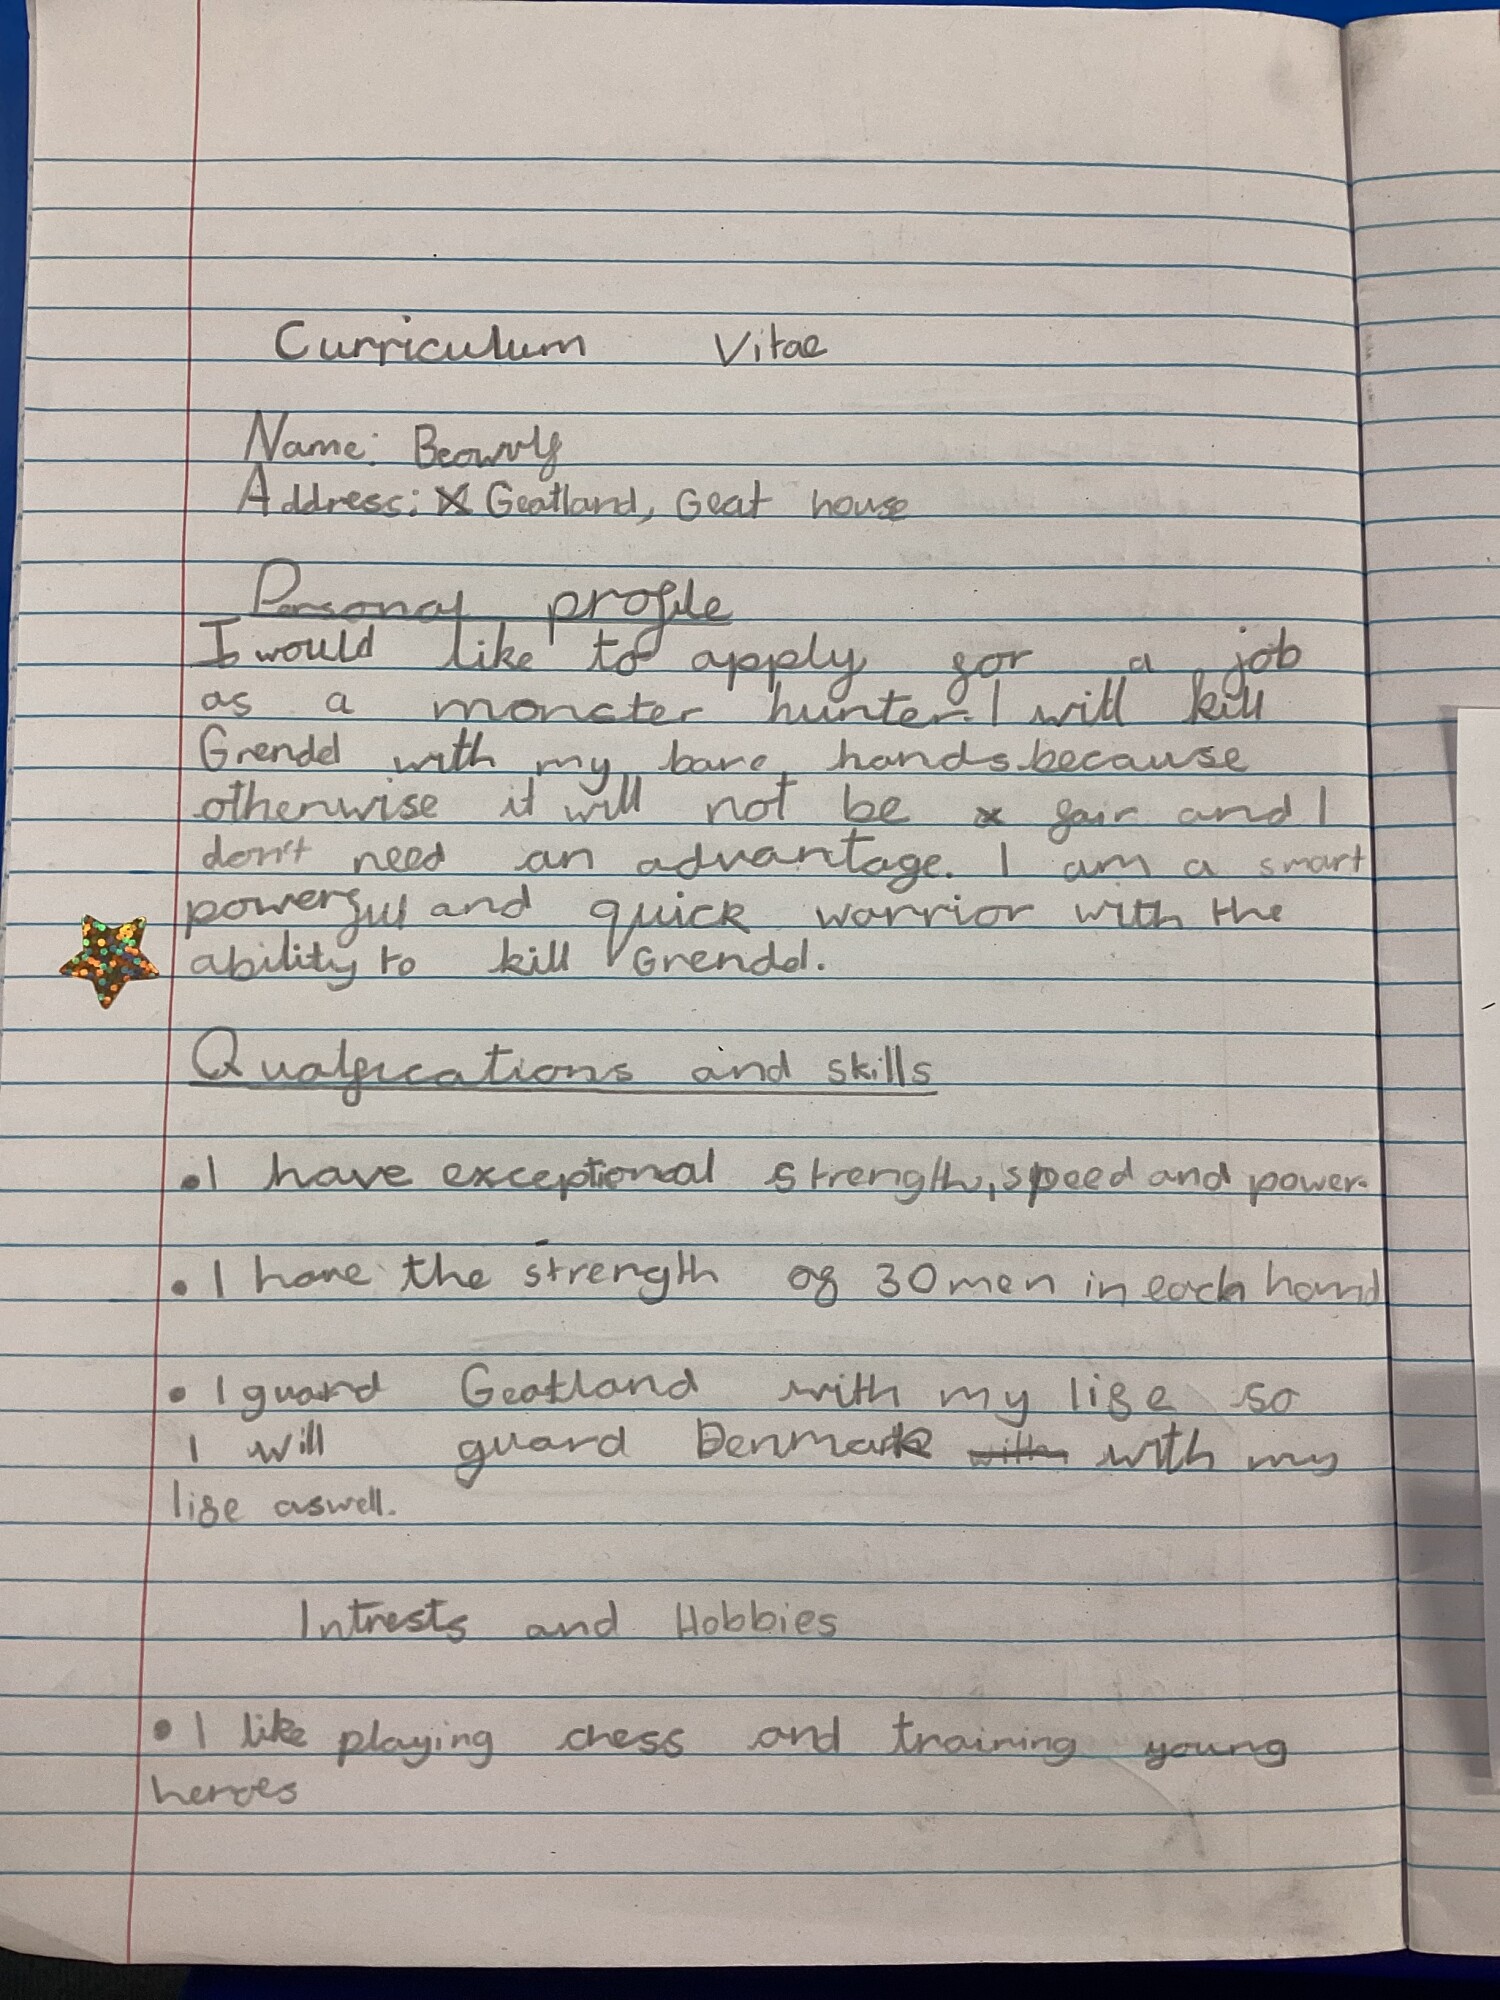 Curriculum Vitae
Name: Beowulf
Address: Geatland, Geat house
Personal profile
I would like to apply for a job
as a monster hunter. I will kill
Grendel with my bare hands because
otherwise it will not be fair and I
don't need an advantage. I am a smart
powerful and quick warrior with the
ability to kill Grendel.
Qualifications and skills
•I have exceptional strength, speed and power.
•I have the strength of 30 men in each hand
•I guard Geatland with my life so
I will guard Denmark with with my
life aswell.
Intrests and Hobbies
•I like playing chess and training young
heroes